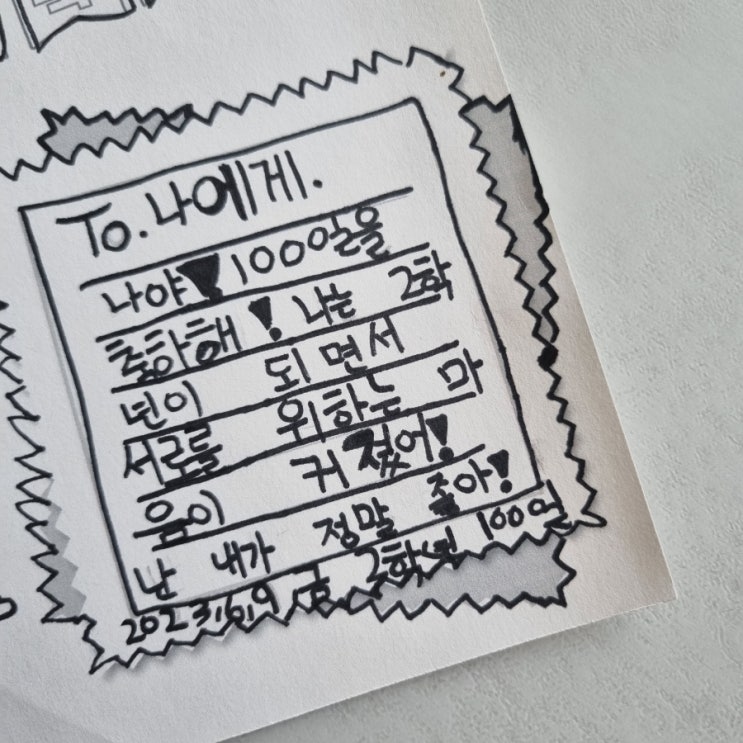 To. 나에게.
나야 100일을
축하해! 나는 2학
년이 되면서
서로를 위하는 마
음이 커졌어!
난 내가 정말 좋아!
2023.6.9 금 2학년 100일